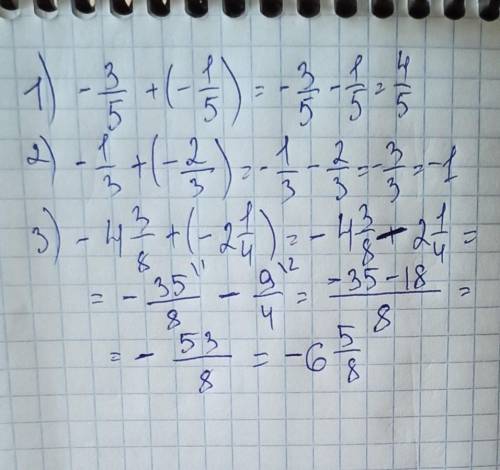 1) - 3/5 + (- 1/5) = - 3/5 - 1/5 = 4/5
2) - 1/3 + (- 2/3) = - 1/3 - 2/3 = - 3/3 = -1
3) - 4 3/8 + (- 2 1/4) = - 4 3/8 - 2 1/4 =
= - 35/8 \1 - 9/4 \2 = (-35-18)/8 =
= - 53/8 = -6 5/8